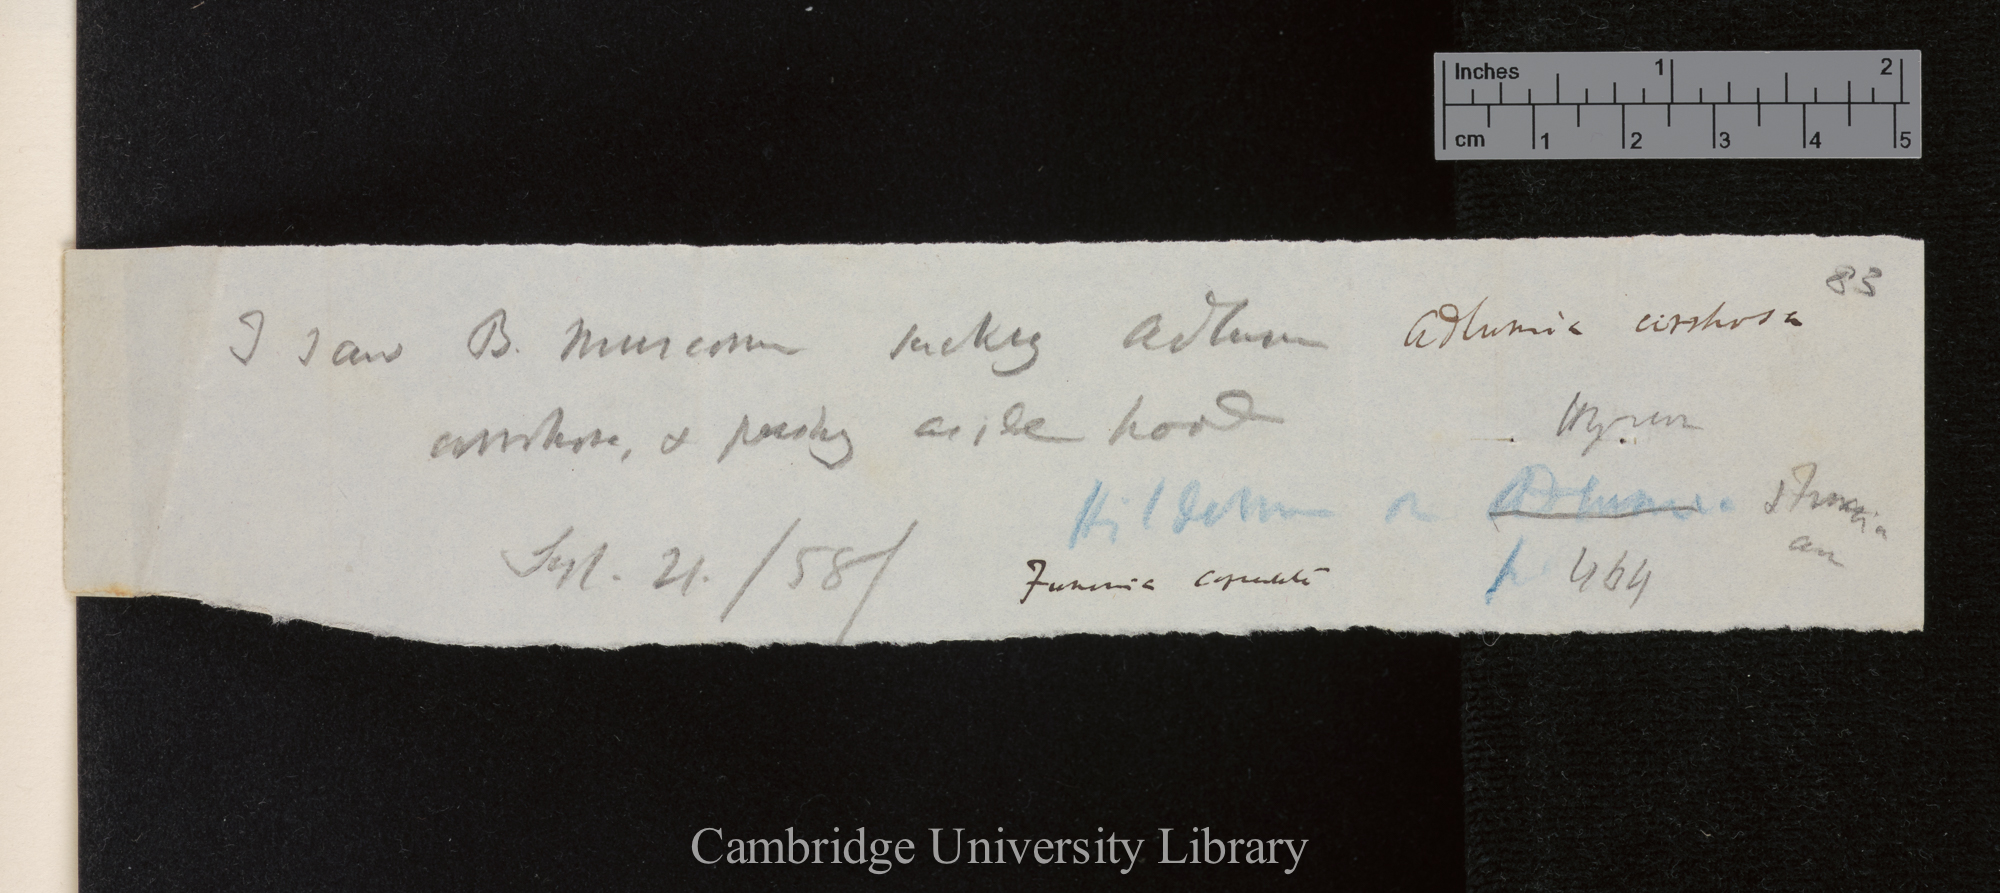 83
I saw B. Muscorum sucking Adlumia
cirrhosa, & pushing aside hood
Sept. 21. /58/
Adlumia cirrhosa
Hildebrand on Adlumia
& Fumaria
p 464
Fumaria capreolata
Inches 1 2
cm 1 2 3 4 5
Cambridge University Library